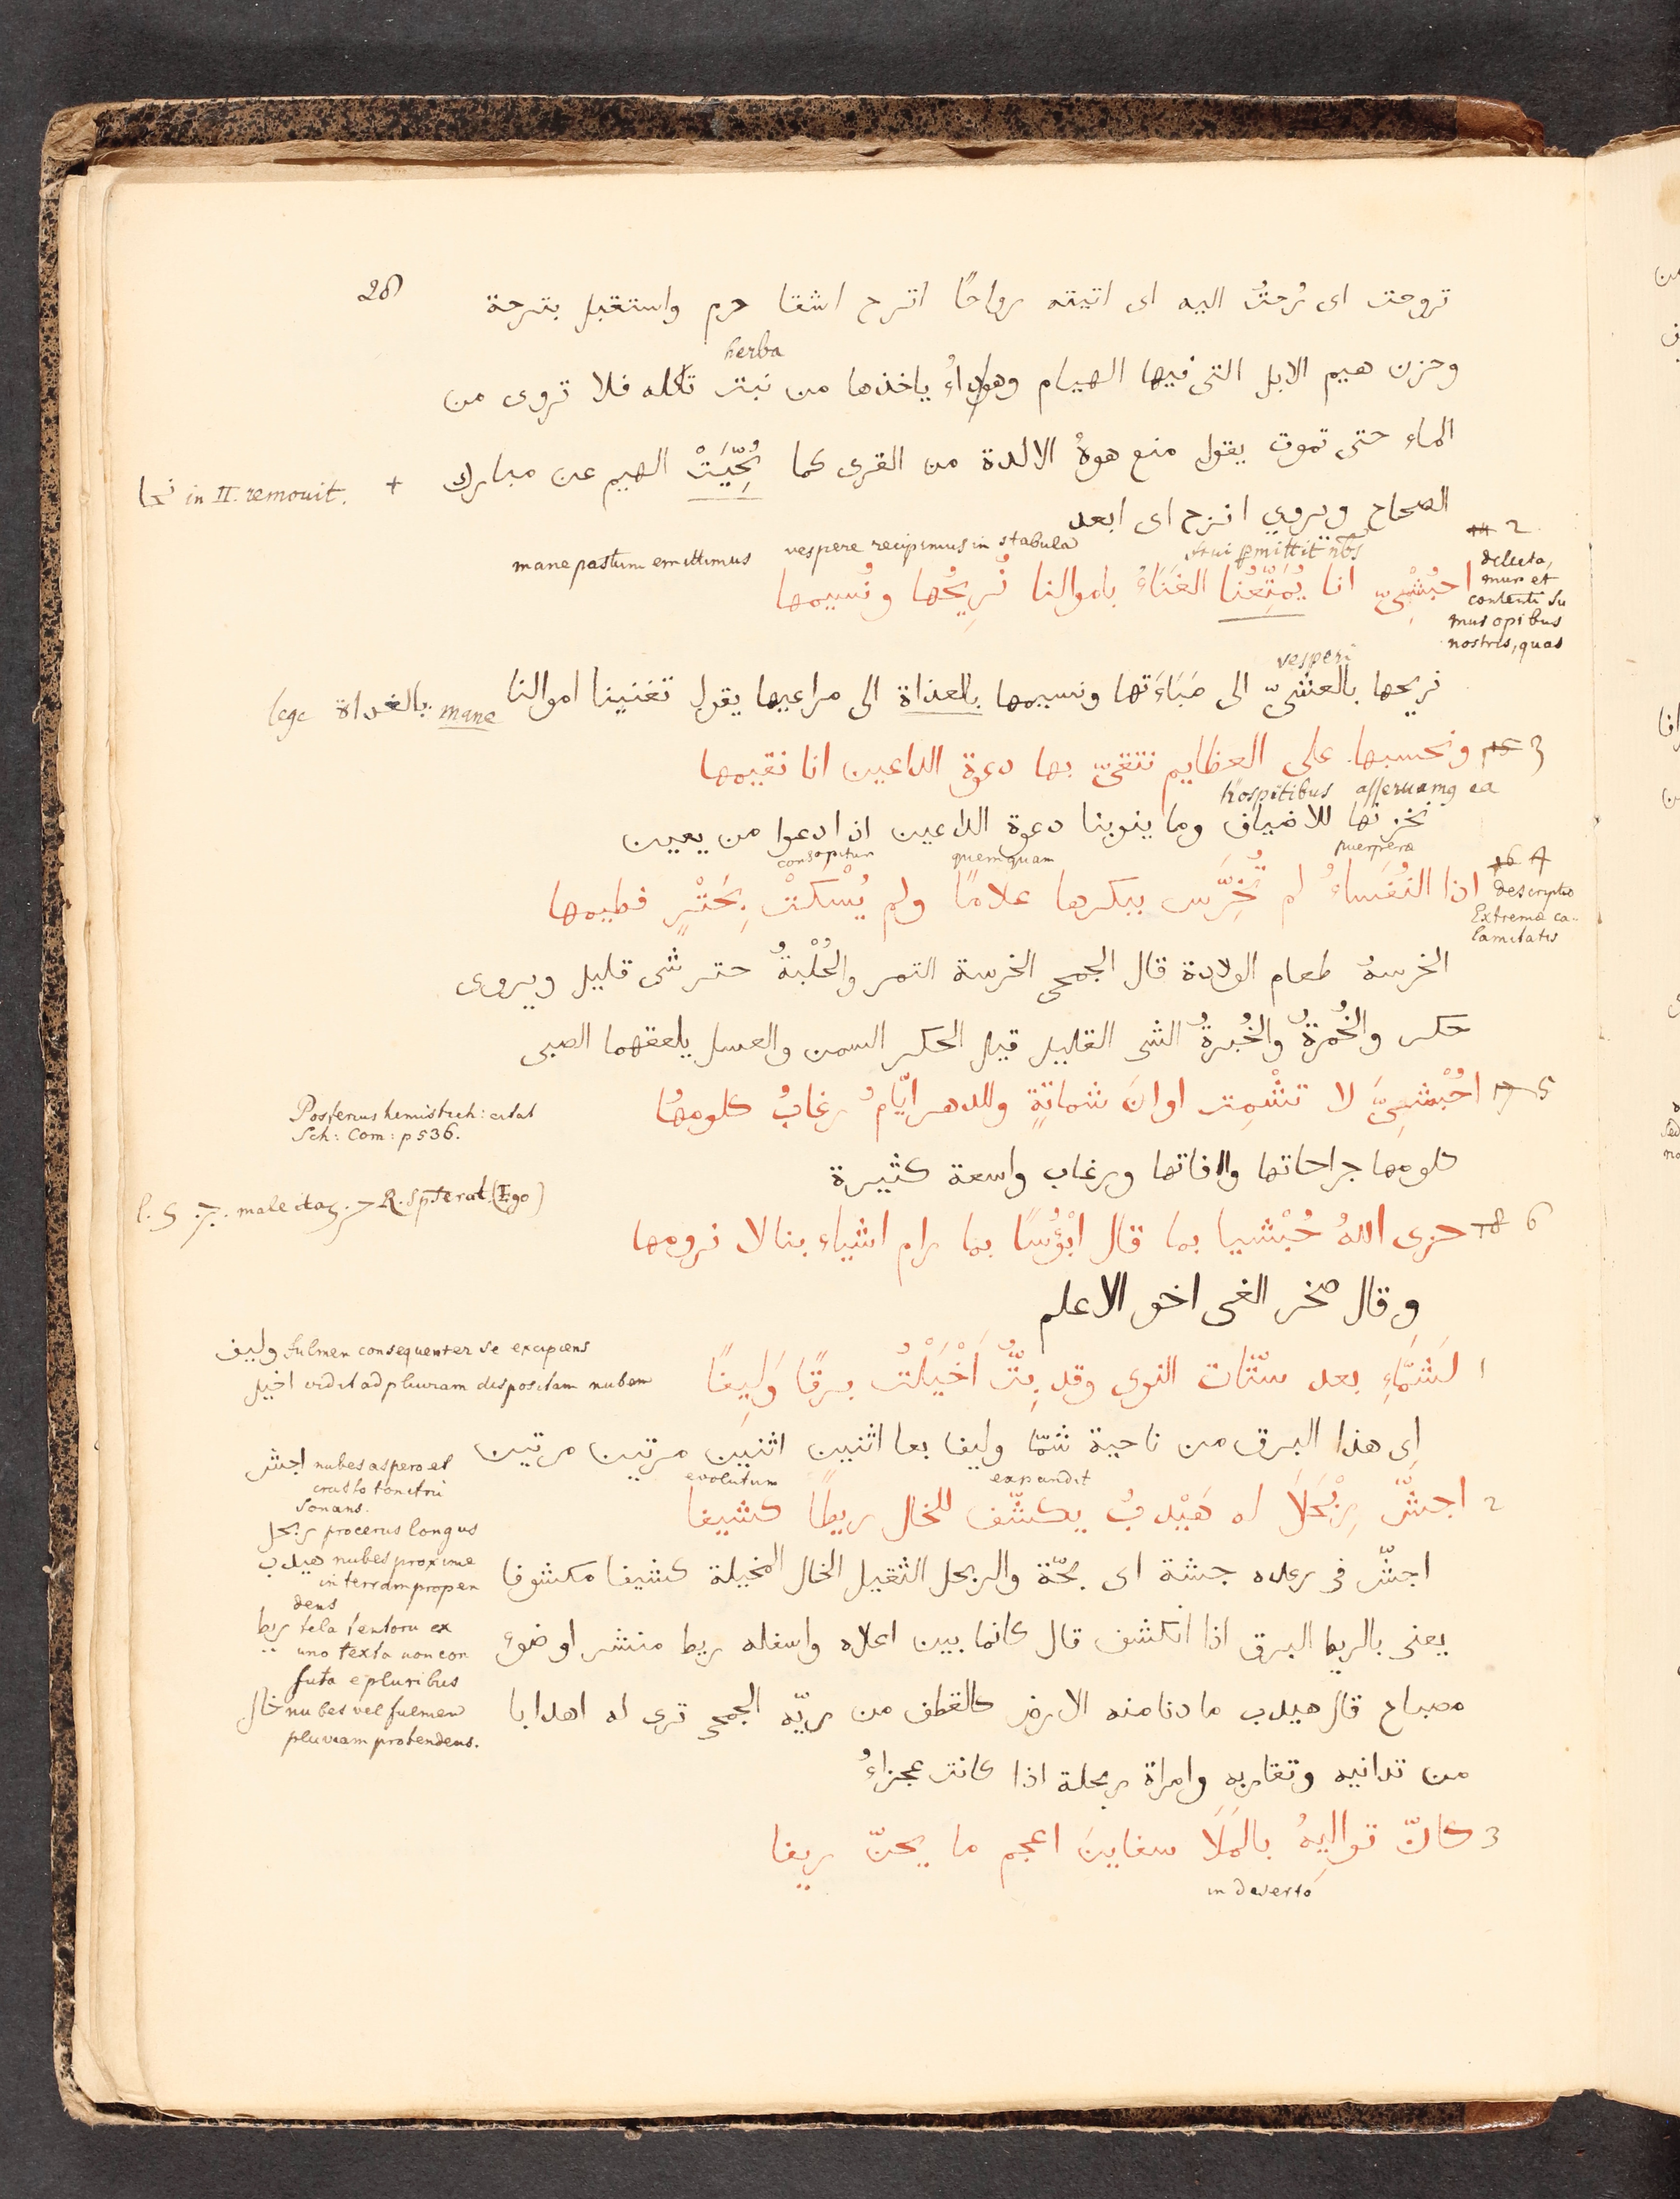 26
تروحت اى رُحتُ اليه اى اتيته رواحًا اترح اشقا حرم واستقبل بترحة
herba
وحزن هيم الابل التى فيها الهيام وهو داءُ ياخذها من نبت تاكله فلا تروى من
الماء حتى تموت يقول منع هوهُ الالدة من القرى كما نُحِّيَتْ الهيم عن مبارك +
نحا in II. removit.
الصحاح ويروي انزح اى ابعد
mane pastum emittimus vespere recipimus in stabula
frui permittit nos
2
احبُشِىّ انا يُمَتِّعُنا الغَنَاءُ باموالنا نُرِيحُها ونُسيمها
delecta,
mur et
contenti su
mus opibus
nostris, quas
vesperi
نريحها بالعشىّ الى مَبَاءَتها ونسيمها بالعذاة الى مراعيها يقول تغنينا اموالنا
lege بالغداة: mane
3 ونحسبها على العظايم نتقىّ بها دعوة الداعين انا نقيمها
hospitibus asservamq ea
نخزنها للاضياف وما ينوبنا دعوة الداعين اذا دعوا من يعين
consopitur quemquam puerpera
4 اذا النُفَساءُ لم تُخَرَّس ببكرها علامًا ولم يُسْكتْ بِحَتْرٍ فطيمها
descriptio
Extrema ca-
lamitatis
الخرسة طعام الولادة قال الجمحى الخرسة التمر والحُلْبةُ حتر شى قليل ويروى
حكر والخُمرةُ والخُبرةُ الشى القليل قيل الحكر السمن والعسل يلعقهما الصبى
5 احُبْشِىَّ لا تشْمِت اوانَ شماتةٍ وللدهر ايّامُ رغابُ كلومهُا
Posterius hemistich: citat
Sch: Com: p 536.
كلومها جراحاتها وافاتها ورغاب واسعة كثيرة
6 حزى اللهُ حُبْشيا بما قال ابْؤُسًا بما رام اشياء بنا لا نرومها
وقال صخر الغى اخو الاعلم
وليف fulmen consequenter se excipiens
1 لَشَمّاءِ بعد ستّات النوى وقد بِتُّ اَخْيَلْتُ برقًا وَلِيفًا
اخيل vidit ad pluviam dispositam nubem
اى هذا البرق من ناحية شمّا وليفا بعا اثنين اثنين مرتين مرتين
evolutum expandit
2 اجشّ رِبْحَلاً له هَيْدبُ يكشّف للخال ريطًا كشيفا
اجش nubes aspero et
crasso tonitru
sonans.
ربحل procerus longus
هيدب nubes proxime
in terram propen
dens
ريط tela tentoru ex
uno texta non con
futa e pluribus
خال nubes vel fulmen
pluviam protendens.
اجشّ فى رعده جشة اى بحّة والربحل الثقيل الخال المخيلة كشيفا مكشوفا
يعنى بالريط البرق اذا انكشف قال كانما بين اعلاه واسفله ريط منشر او ضوء
مصباح قال هيدب ما دنا منه الارض كالقطف من ريّه الجمحى ترى له اهدابا
من تدانيه وتقاربه وامراة ربحلة اذا كانت عجزاءُ
3 كانّ توالِيهُ بالمَلَا سفاينَ اعجم ما يحنّ ريفا
in deserto